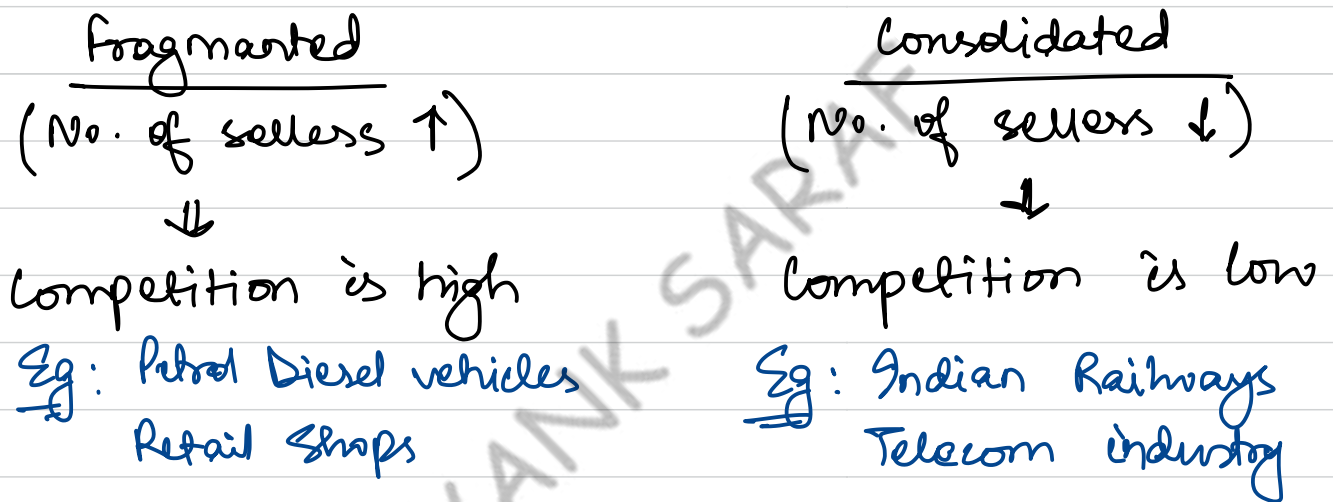 Fragmanted
(No. of sellers ↑)
⇓
Competition is high
Eg: Petrol Diesel vehicles
Retail Shops
Consolidated
(No. of sellers ↓)
⇓
Competition is low
Eg: Indian Railways
Telecom industry
ANK SARAF